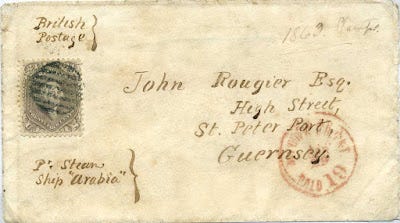 British
Postage
1863.
John Rougier Esq.
High Street,
St. Peter Port
Guernsey.
Pr. Steam
Ship "Arabia"
PAID
19